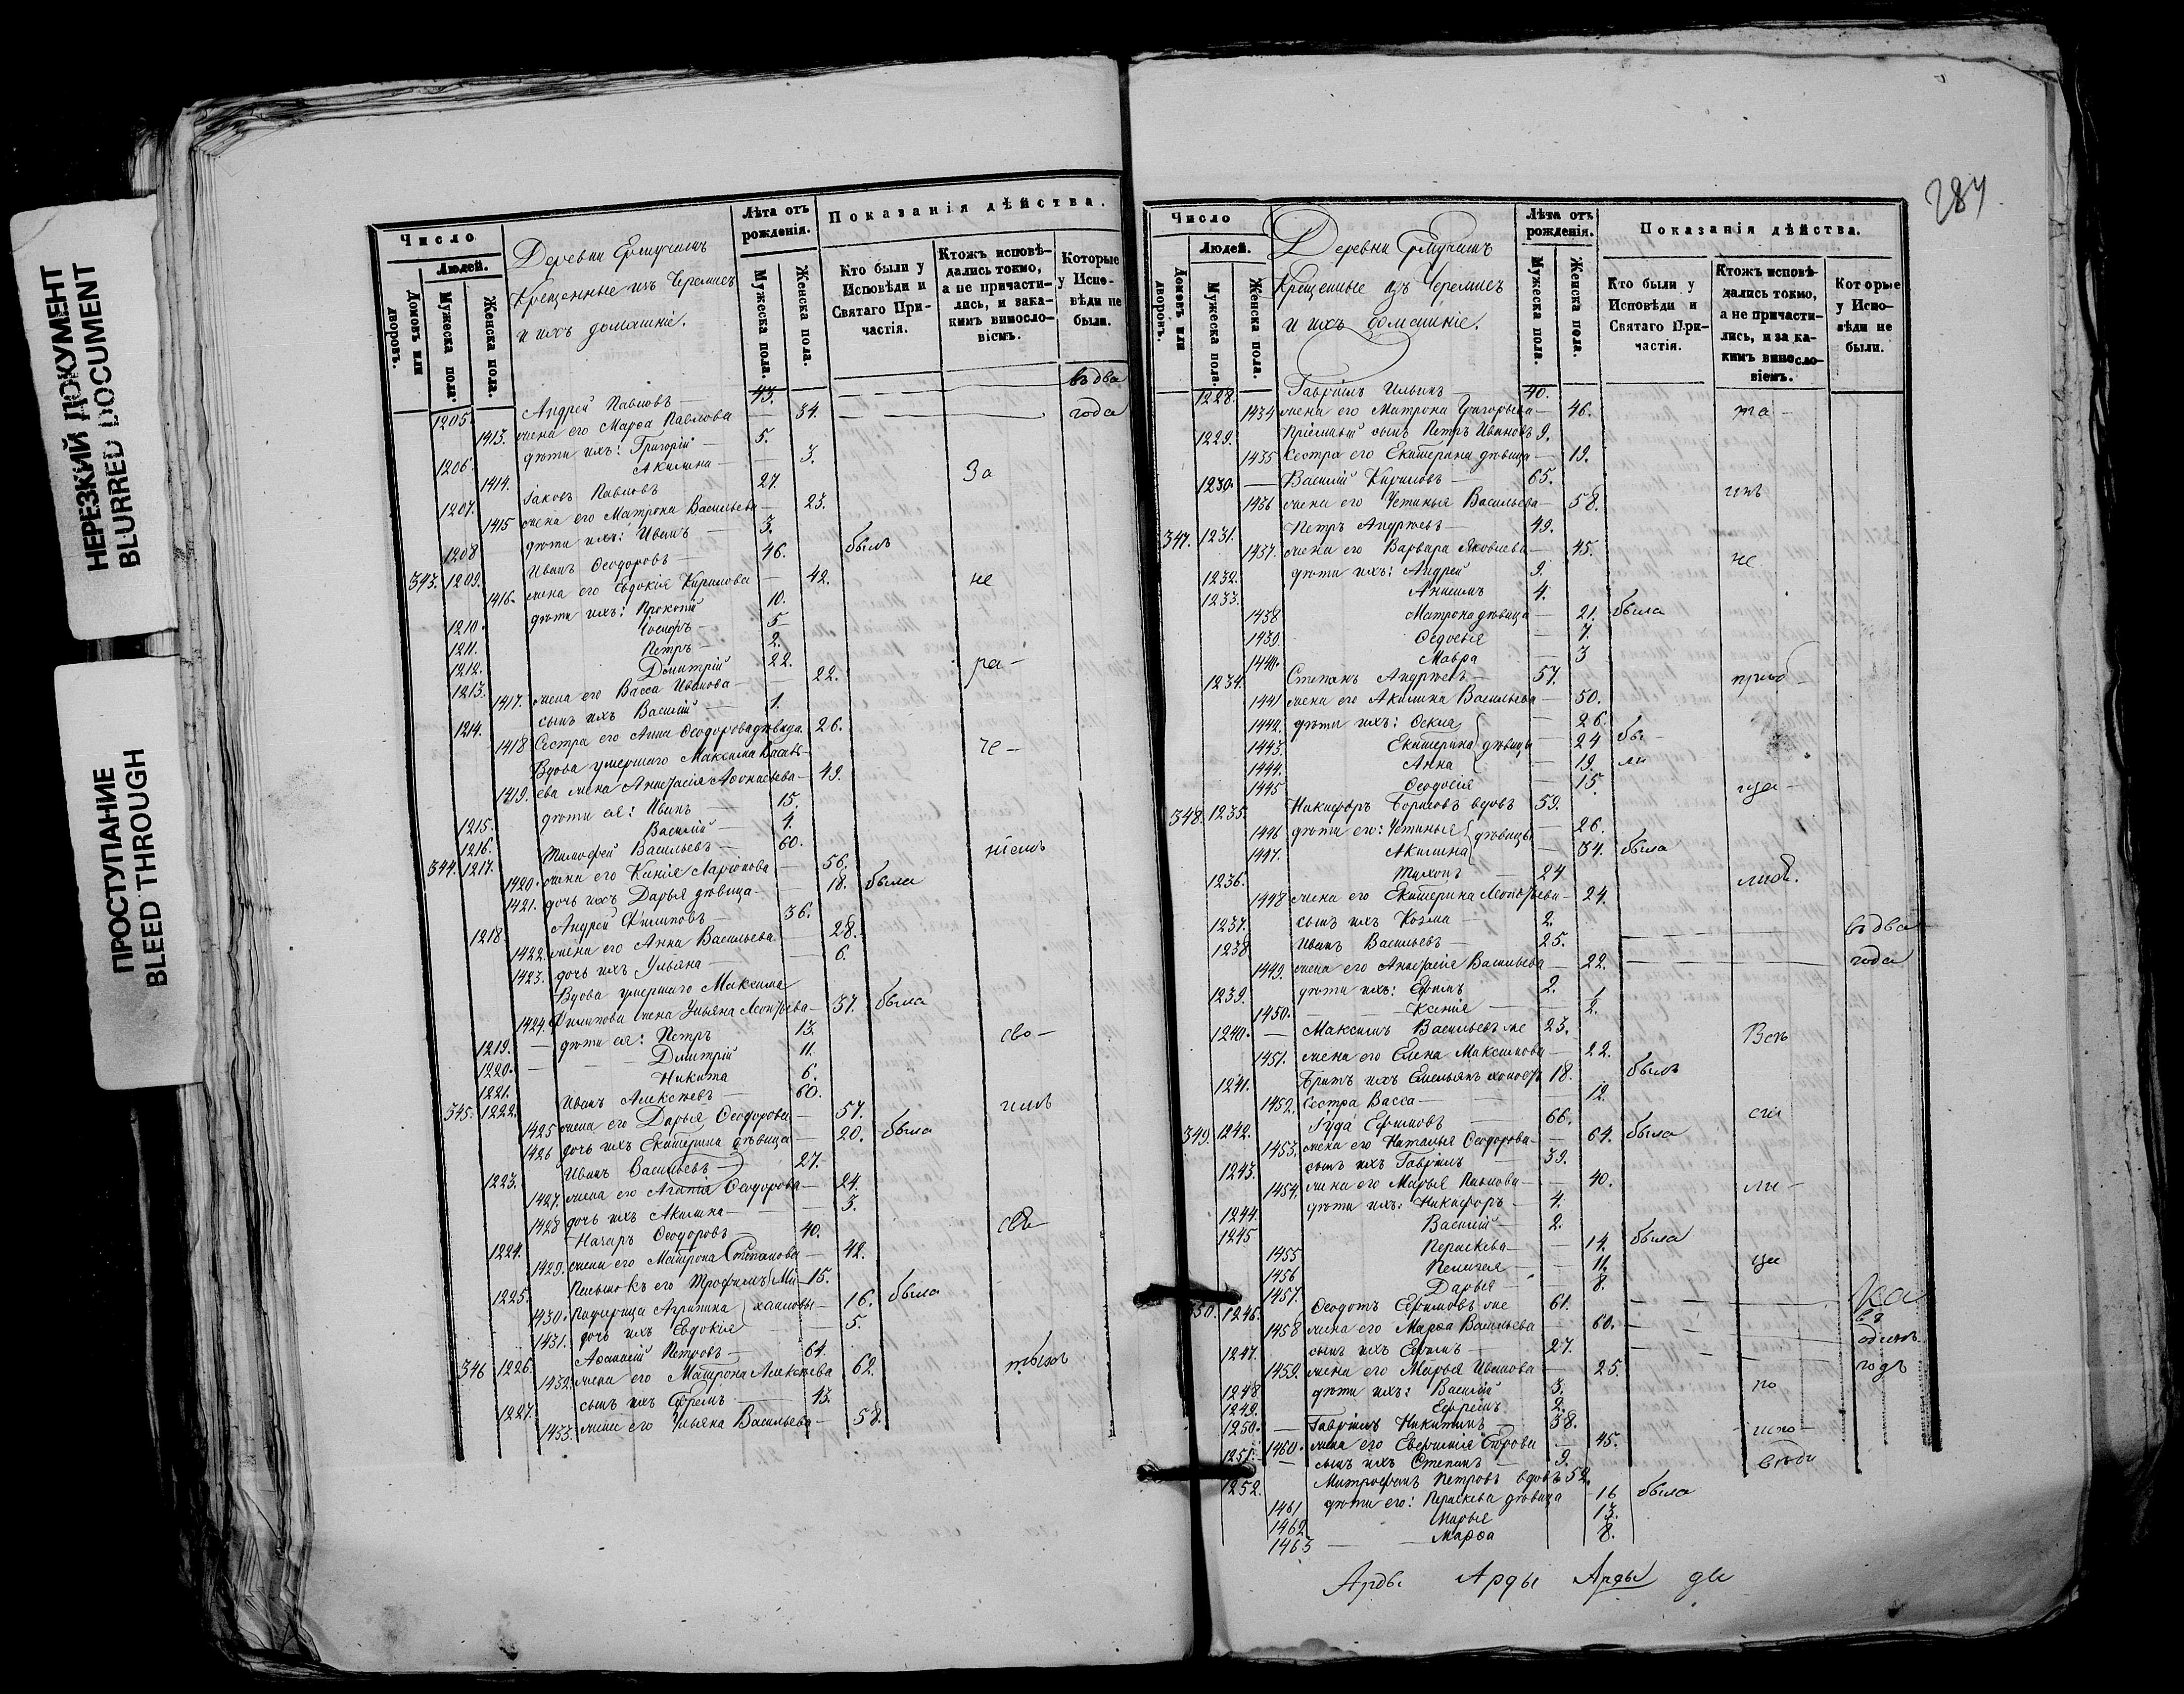 НЕРЕЗКИЙ ДОКУМЕНТ
BLURRED DOCUMENT
ПРОСТУПАНИЕ
BLEED THROUGH
Число
Людей.
Домовъ или дворовъ.
Мужеска пола.
Женска пола.
Деревни
Крещенные изъ Черемисъ
и ихъ домашніе.
Лѣта отъ рожденія.
Мужеска пола.
Женска пола.
Показанія дѣйства.
Кто были у Исповѣди и Святаго Причастія.
Ктожъ исповѣдались токмо, а не причастились, и за какимъ винословіемъ.
Которые у Исповѣди не были.
1205. Андрей Павловъ — 43. — въ два
1413. жена его Марѳа Павлова — 34. — года
1206. дѣти ихъ: Григорій — 5.
1414. Акилина — 3
1207. Іаковъ Павловъ 27. За
1415 жена его Матрона Васильева — 23.
1208 дѣти ихъ: Иванъ — 3.
343. 1209. Иванъ Ѳеодоровъ — 46. былъ
1416. жена его Евдокія Кирилова — 42. не
1210. дѣти ихъ: Прокопій 10.
1211. Іосифъ — 5
1212. Петръ — 2.
1213. Дмитрій 22. ра-
1417. жена его Васса Иванова — 22.
1214. сынъ ихъ Василій — 1.
1418 Сестра его Анна Ѳеодорова дѣвица. 26.
Вдова умершаго Максима Василь- че-
1419. ева жена Анастасія Аѳонасьева — 49.
1215. дѣти ея: Иванъ — 15.
1216. Василій — 4.
344. 1217. Тимофей Васильевъ — 60. ніемъ
1420. жена его Ксенія Ларіонова — 56.
1421. дочь ихъ Дарья дѣвица — 18. была
1218 Андрей Филиповъ — 36.
1422. жена его Анна Васильева — 28.
1423. дочь ихъ Ульяна — 6.
Вдова умершаго Максима
1424. Филипова жена Ульяна Леонтьева — 37. была
1219. — дѣти ея: Петръ 13. сво-
1220. — Дмитрій 11.
1221. Никита 6.
345. 1222. Иванъ Алексѣевъ — 60. имъ
1425 жена его Дарья Ѳеодорова — 57.
1426 дочь ихъ Екатерина дѣвица — 20. была
1223. Иванъ Васильевъ — 27.
1427. жена его Агапія Ѳеодорова — 24.
1428 дочь ихъ Акилина — 3.
1224. Назаръ Ѳеодоровъ 40.
1429. жена его Матрона Степанова — 42.
1225. Пасынокъ его Трофимъ Ми- 15.
1430. Падчерица Агрипина хаиловы — 16. была
1431. дочь ихъ Евдокія — 5.
346 1226. Аѳанасій Петровъ — 64.
1432. жена его Матрона Алексѣева 62.
1227. сынъ ихъ Ефремъ — 43.
1433. жена его Ульяна Васильева — 58.
284
Число
Людей.
Домовъ или дворовъ.
Мужеска пола.
Женска пола.
Деревни
Крещенные изъ Черемисъ
и ихъ домашніе.
Лѣта отъ рожденія.
Мужеска пола.
Женска пола.
Показанія дѣйства.
Кто были у Исповѣди и Святаго Причастія.
Ктожъ исповѣдались токмо, а не причастились, и за какимъ винословіемъ.
Которые у Исповѣди не были.
1228. Гавріилъ Ильинъ — 40.
1434 жена его Матрона Григорьева — 46. та-
1229. Пріемный сынъ Петръ Ивановъ 9.
1435 Сестра его Екатерина дѣвица — 19.
1230. — Василій Кириловъ — 65.
1436 жена его Устинья Васильева — 58.
347. 1231. Петръ Андреевъ — 49.
1437. жена его Варвара Яковлева — 45. не
1232. дѣти ихъ: Андрей 9.
1233. Анисимъ 4.
1438 Матрона дѣвица — 21. была
1439 Ѳедосья — 7.
1440. Мавра — 3
1234. Степанъ Андреевъ — 57.
1441 жена его Акилина Васильева — 50.
1442. дѣти ихъ: Ѳекла — 26.
1443. Екатерина дѣвицы — 24 бы-
1444. Анна — 19. ли
1445 Ѳеодосія — 15.
348. 1235. Никифоръ Борисовъ вдовъ 59. ща-
1446 дѣти его: Устинья дѣвицы — 26.
1447. Акилина — 34. была
1236. Тихонъ — 24
1448 жена его Екатерина Леонтьева — 24.
1237. сынъ ихъ Козма — 2.
1238 Иванъ Васильевъ — 25. — въ два
1449. жена его Анастасія Васильева — 22. — года
1239. дѣти ихъ: Ефимъ 2.
1450. Ксенія — 2.
1240. — Максимъ Васильевъ же 23. Всѣ
1451. жена его Елена Максимова — 22.
1241. Братъ ихъ Емельянъ холостъ 18. былъ
1452. Сестра Васса — 12.
349. 1242. Іуда Ефимовъ — 66.
1453. жена его Наталья Ѳеодорова — 64. была
1243. сынъ ихъ Гавріилъ — 39.
1454. жена его Марья Павлова — 40. ли-
1244. дѣти ихъ: Никифоръ — 4.
1245 Василій — 2.
1455 Параскева — 14. была
1456 Пелагея — 11.
1457. Дарья — 8.
350. 1246. Ѳеодотъ Ефимовъ же 61.
1458 жена его Марѳа Васильева — 60. — въ
1247. сынъ ихъ Ефимъ — 27. — одинъ
1459. жена его Марья Иванова — 25. — годъ
1248. дѣти ихъ: Василій 3. по
1249. Ефремъ 2.
1250. — Гавріилъ Никитинъ — 38. испо-
1460. жена его Евфимія Егорова — 45.
1251. — сынъ ихъ Степанъ — 9. вѣди
1252. Митрофанъ Петровъ вдовъ 52.
1461 дѣти его: Параскева дѣвица 16 была
1462 Марья 13.
1463 — Марѳа 8.
Арды Арды